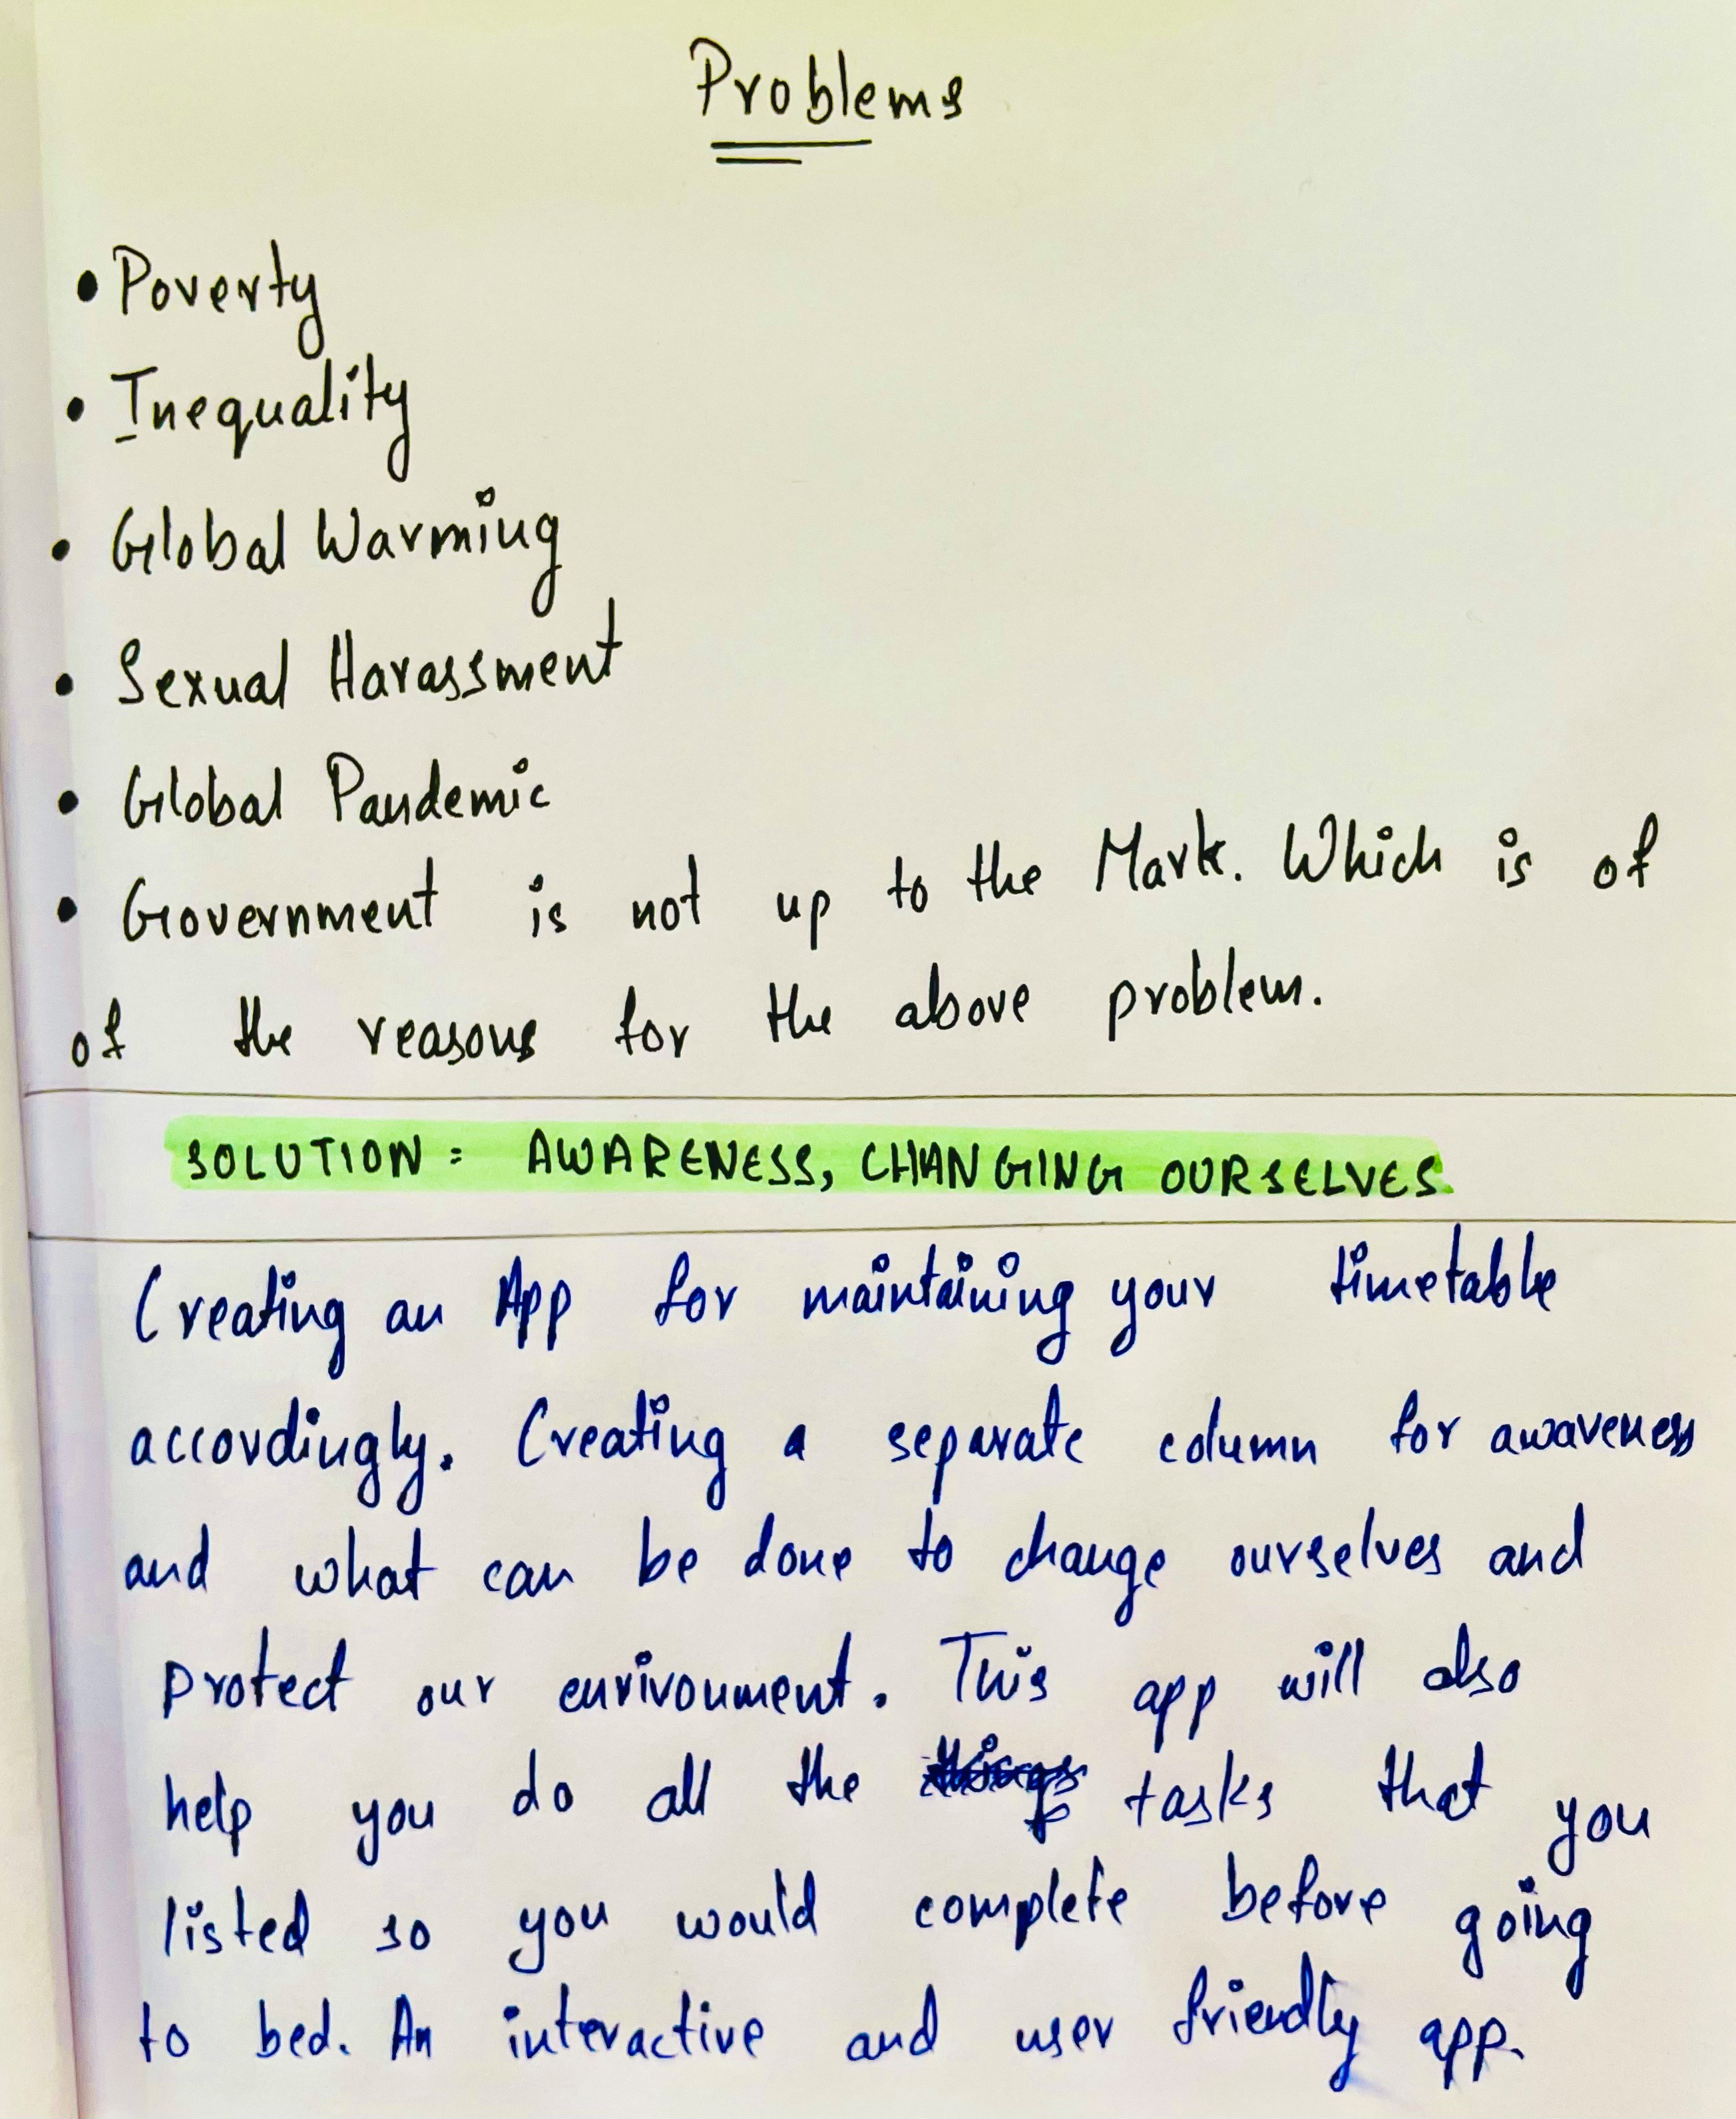 Problems
• Poverty
• Inequality
• Global Warming
• Sexual Harassment
• Global Pandemic
• Government is not up to the Mark. Which is of
of the reasons for the above problem.
SOLUTION : AWARENESS, CHANGING OURSELVES.
Creating an App for maintaining your timetable
accordingly. Creating a separate column for awareness
and what can be done to change ourselves and
protect our enrivonment. This app will also
help you do all the things tasks that you
listed so you would complete before going
to bed. An interactive and user friendly app.